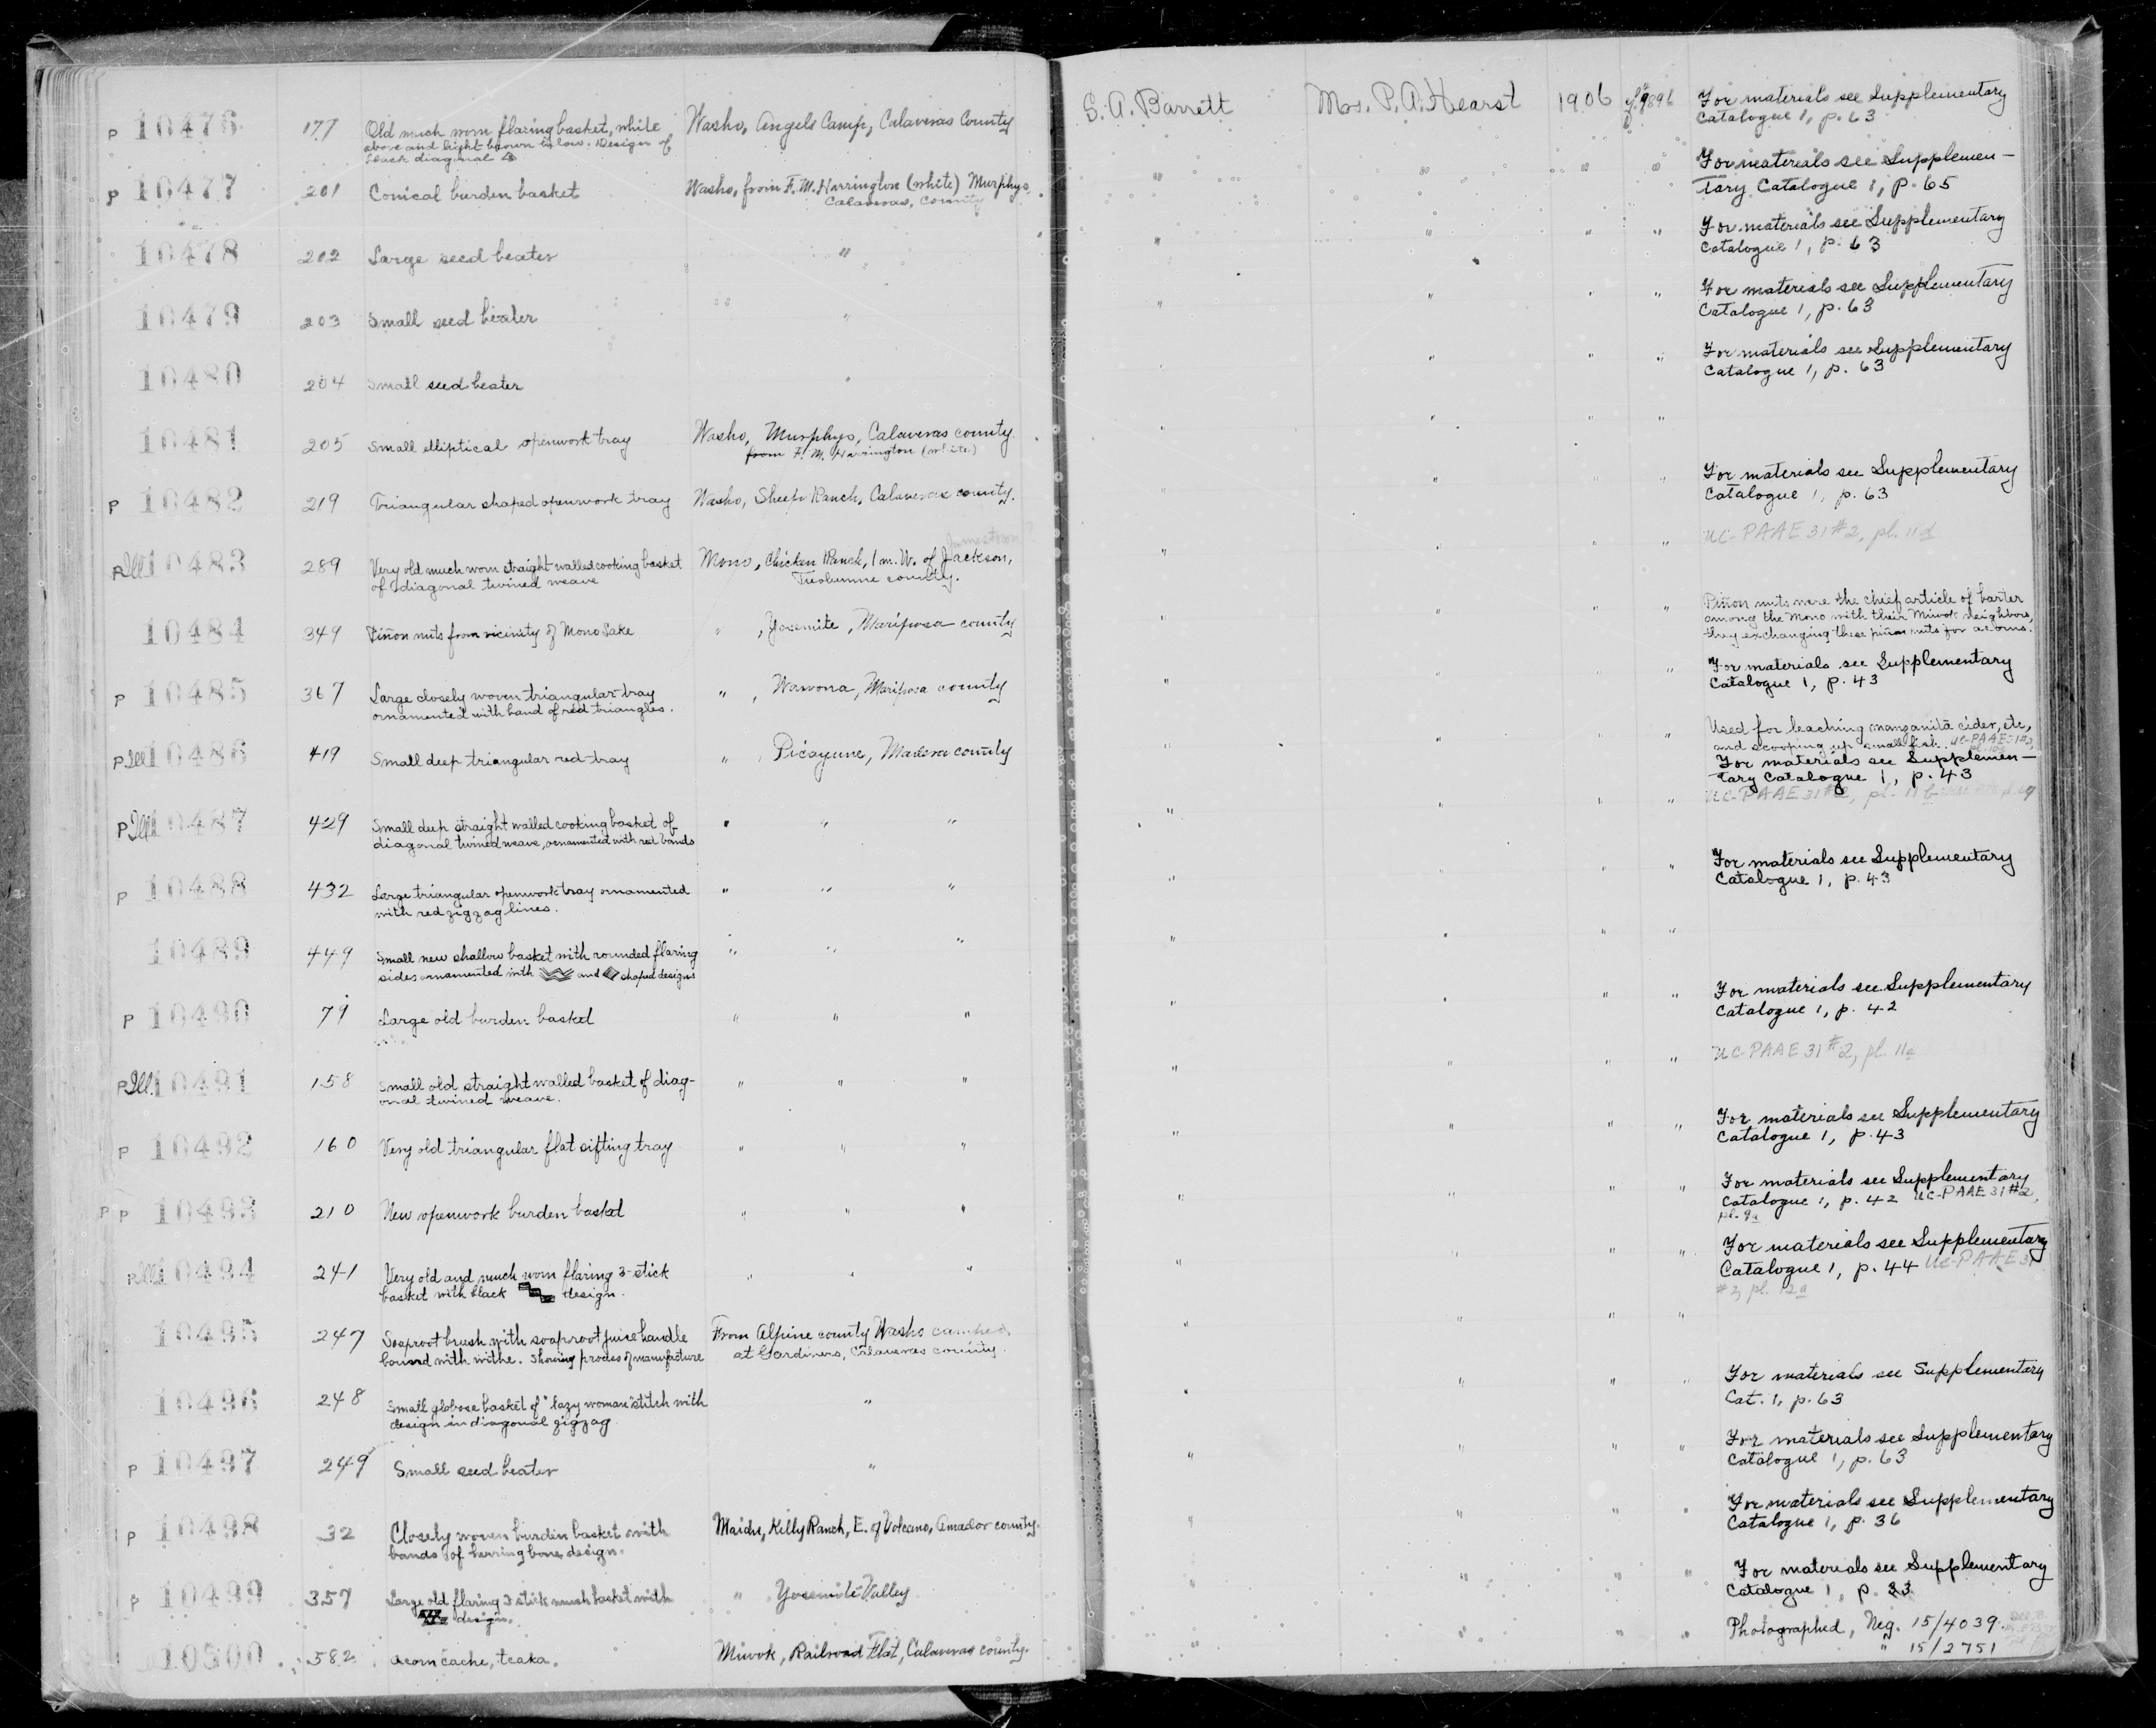 P 10476 177 Old much worn flaring basket, white Washo, Angels Camp, Calaveras County S. A. Barrett Mrs. P. A. Hearst 1906 For materials see Supplementary
above and light brown below. Design of Catalogue 1, p. 63
black diagonal
P 10477 201 Conical burden basket Washo, from F. M. Harrington (white) Murphys, " " " " For materials see Supplemen-
Calaveras, County tary Catalogue 1, p. 65
10478 202 Large seed beater " " " " " For materials see Supplementary
Catalogue 1, p. 63
10479 203 Small seed beater " " " " " For materials see Supplementary
Catalogue 1, p. 63
10480 204 Small seed beater " " " " " For materials see Supplementary
Catalogue 1, p. 63
10481 205 Small elliptical openwork tray Washo, Murphys, Calaveras county. " " " "
from F. M. Harrington (white)
P 10482 219 Triangular shaped openwork tray Washo, Sheep Ranch, Calaveras county. " " " " For materials see Supplementary
Catalogue 1, p. 63
Jamestown?
P Ill 10483 289 Very old much worn straight walled cooking basket Mono, Chicken Ranch, 1 m. W. of Jackson, " " " " UC-PAAE 31 #2, pl. 11d
of diagonal twined weave Tuolumne county.
10484 349 Piñon nuts from vicinity of Mono Lake " , Yosemite, Mariposa county " " " " Piñon nuts were the chief article of barter
among the Mono with their Miwok neighbors,
they exchanging these piñon nuts for acorns.
P 10485 367 Large closely woven triangular tray " , Wawona, Mariposa county " " " " For materials see Supplementary
ornamented with band of red triangles. Catalogue 1, p. 43
P Ill 10486 419 Small deep triangular red tray " , Picayune, Madera county " " " " Used for leaching manzanita cider, etc,
and scooping up small fish.
For materials see Supplemen-
tary Catalogue 1, p. 43
P Ill 10487 429 Small deep straight walled cooking basket of " " " " " " " UC-PAAE 31 #2, pl. 11b
diagonal twined weave, ornamented with red bands
P 10488 432 Large triangular openwork tray ornamented " " " " " " " For materials see Supplementary
with red zigzag lines. Catalogue 1, p. 43
10489 449 Small new shallow basket with rounded flaring " " " " " " "
sides ornamented with and shaped designs
P 10490 79 Large old burden basket " " " " " " " For materials see Supplementary
Catalogue 1, p. 42
P Ill. 10491 158 Small old straight walled basket of diag- " " " " " " " UC-PAAE 31 #2, pl. 11a
onal twined weave.
P 10492 160 Very old triangular flat sifting tray " " " " " " " For materials see Supplementary
Catalogue 1, p. 43
P P 10493 210 New openwork burden basket " " " " " " " For materials see Supplementary
Catalogue 1, p. 42 UC-PAAE 31 #2,
pl. 9a
P Ill 10494 241 Very old and much worn flaring 3-stick " " " " " " " For materials see Supplementary
basket with black design. Catalogue 1, p. 44 UC-PAAE 31
#2, pl. 12a
10495 247 Soaproot brush with soaproot juice handle From Alpine county Washo camped, " " " "
bound with withe. Showing process of manufacture at Gardiners, Calaveras county.
10496 248 Small globose basket of "lazy woman" stitch with " " " " " For materials see Supplementary
design in diagonal zigzag Cat. 1, p. 63
P 10497 249 Small seed beater " " " " " For materials see Supplementary
Catalogue 1, p. 63
P 10498 32 Closely woven burden basket with Maidu, Kelly Ranch, E. of Volcano, Amador county. " " " " For materials see Supplementary
bands of herring bone design. Catalogue 1, p. 36
P 10499 357 Large old flaring 3 stick mush basket with " Yosemite Valley " " " " For materials see Supplementary
design. Catalogue 1, p. 33
10500 582 Acorn cache, tcaka. Miwok, Railroad Flat, Calaveras county. " " " " Photographed, Neg. 15/4039.
" 15/2751